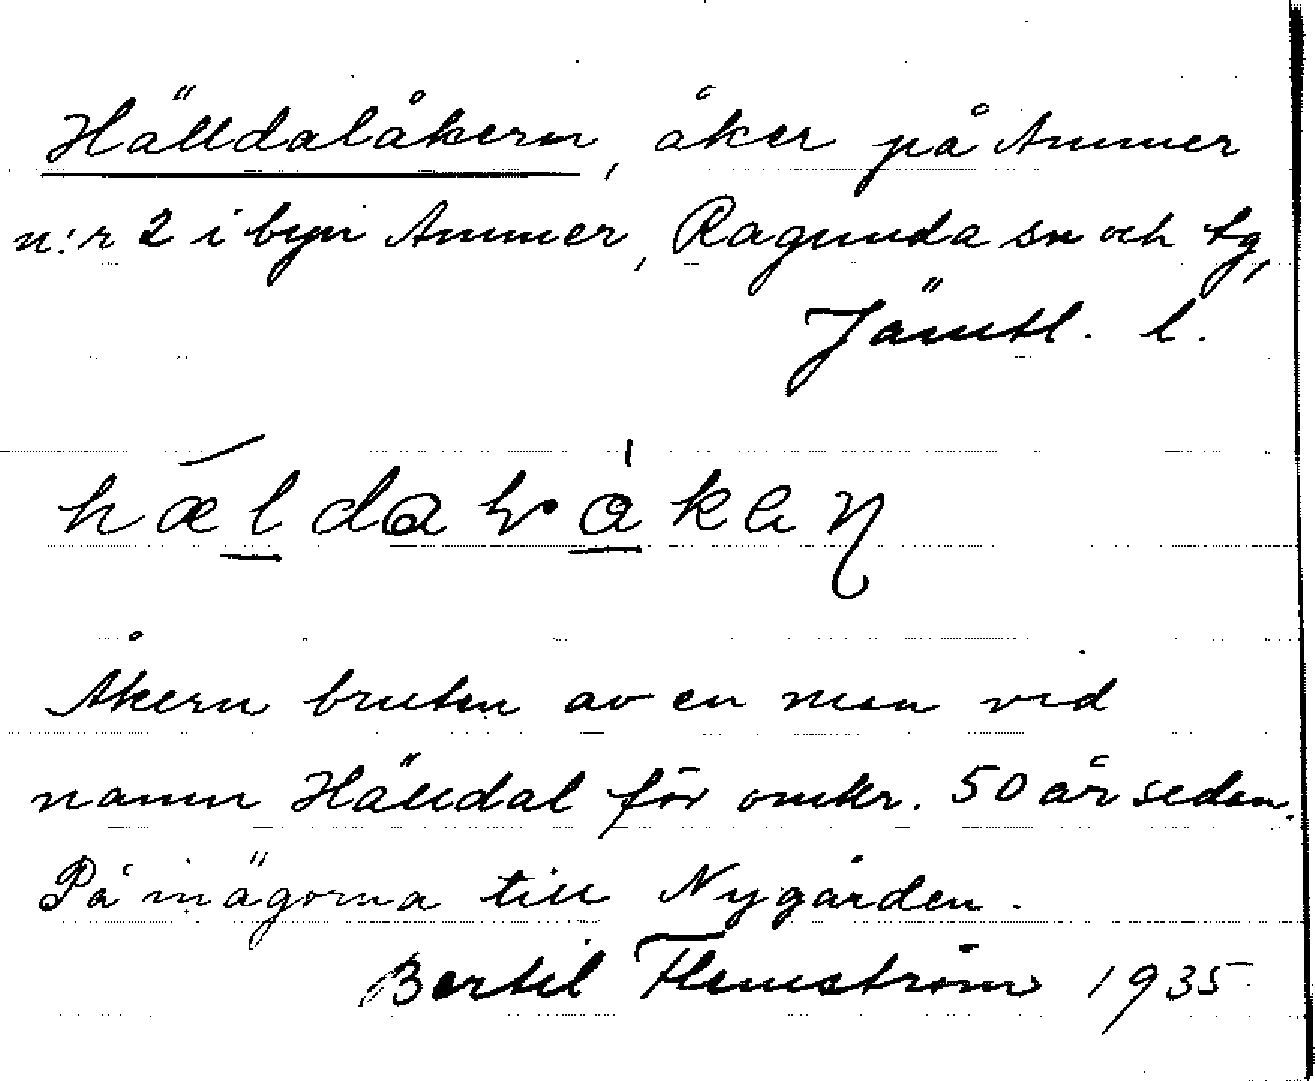 Hälldalåkern, åker på Ammer
n:r 2 i byn Ammer, Ragunda sn och tg,
Jämtl. l.
hældaråkaɳ
Åkern bruten av en man vid
namn Hälldal för omkr. 50 år sedan.
På inägorna till Nygården.
Bertil Flemström 1935